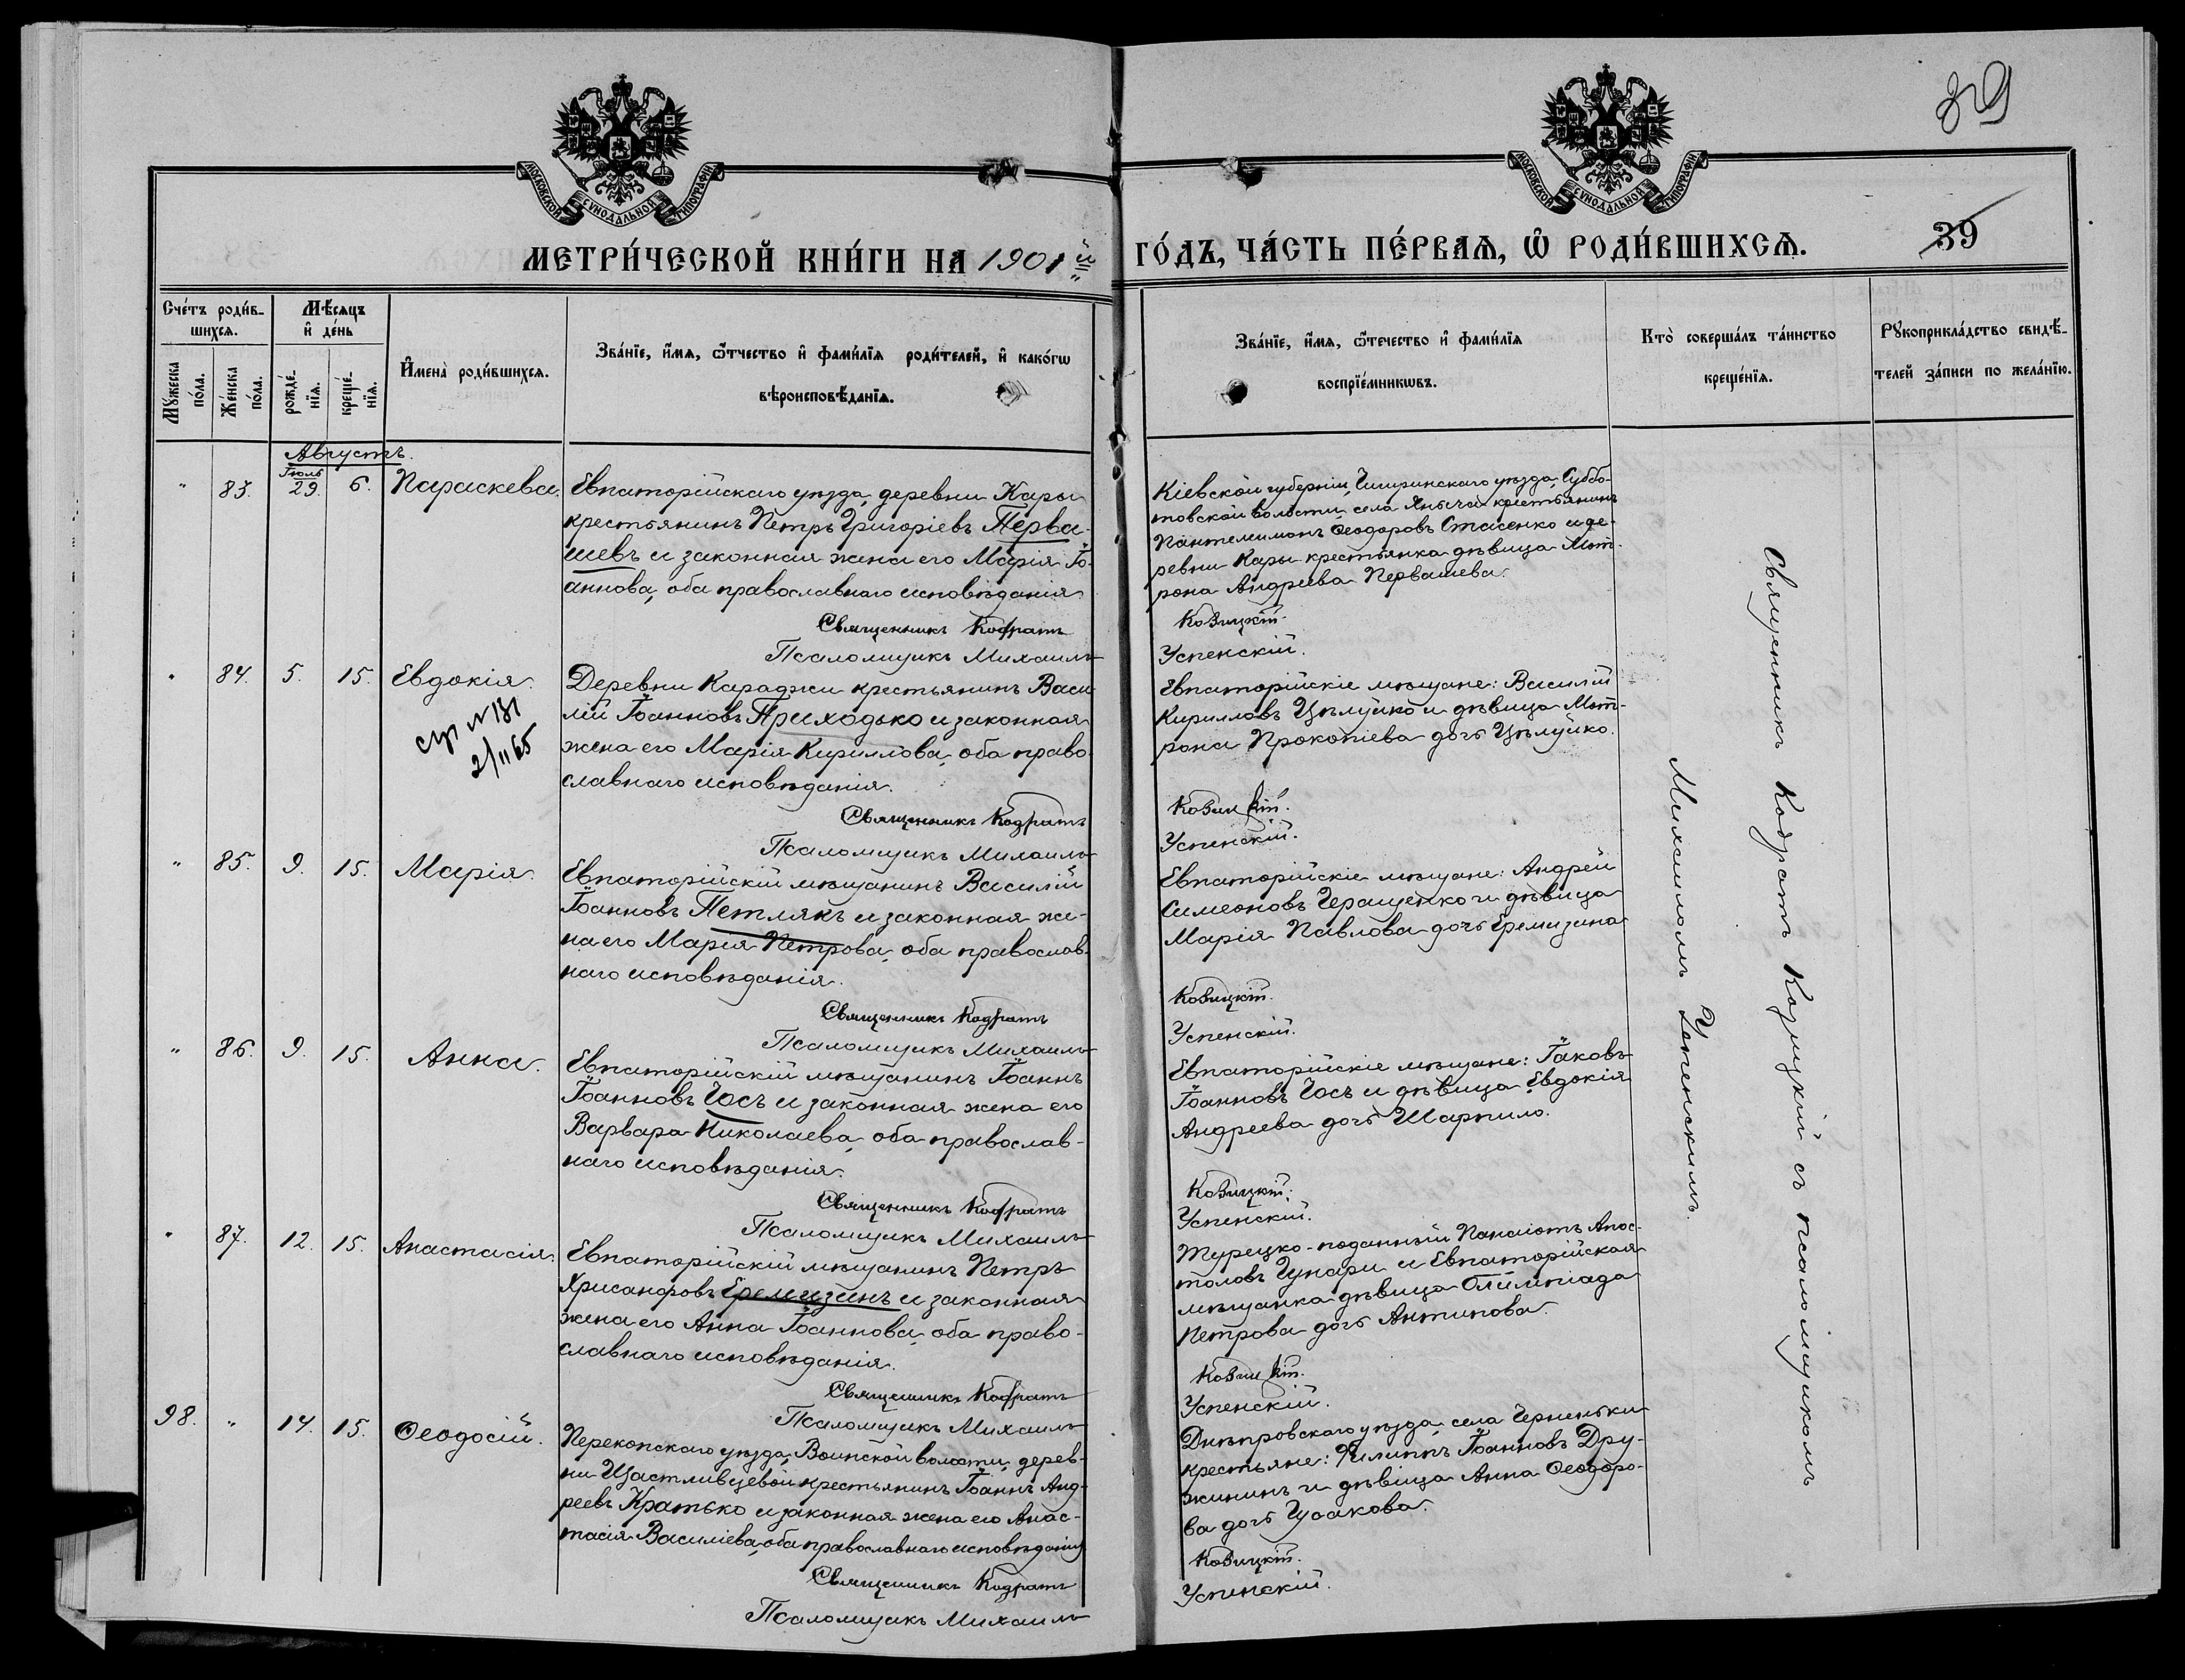 89
МОСКОВСКОЙ СѴНОДАЛЬНОЙ ТИПОГРАФІИ
МОСКОВСКОЙ СѴНОДАЛЬНОЙ ТИПОГРАФІИ
МЕТРИ́ЧЕСКОЙ КНИ́ГИ НА 1901й ГО́ДЪ, ЧА́СТЬ ПЕ́РВАЯ, Ѡ РОДИ́ВШИХСЯ.
39
Сче́тъ роди́в-
шихся.
Мꙋжеска
по́ла.
Же́нска
по́ла.
Мѣ́сяцъ
и де́нь
рожде́-
нїя.
креще́-
нїя.
Имена̀ роди́вшихся.
Зва́нїе, и́мя, ѻ́тчество и фами́лїя роди́телей, и како́гѡ
вѣроисповѣ́данїя.
Зва́нїе, и́мя, ѻ́течество и фами́лїя
воспрїе́мникѡвъ.
Кто̀ соверша́лъ та́инство
креще́нїя.
Рꙋкоприкла́дство свидѣ́-
телей за́писи по жела́нїю.
Августъ.
" 83. Іюль 29. 6. Параскева.
Евпаторійскаго уѣзда, деревни Кары
крестьянинъ Петръ Григоріевъ Перва-
шевъ и законная жена его Марія Іо-
аннова, оба православнаго исповѣданія
Священникъ Кодратъ
Псаломщикъ Михаилъ
Кіевской губерніи, Чигиринскаго уѣзда, Суббо-
товской волости, села Яныча крестьянинъ
Пантелимонъ Ѳеодоровъ Стасенко и де-
ревни Кары крестьянка дѣвица Мат-
рона Андреева Первашева.
Козицкій.
Успенскій.
" 84. 5. 15. Евдокія.
стр N 131
2/II 65
Деревни Караджи крестьянинъ Васи-
лій Іоанновъ Приходько и законная
жена его Марія Кириллова, оба право-
славнаго исповѣданія.
Священникъ Кодратъ
Псаломщикъ Михаилъ
Евпаторійскіе мѣщане: Василій
Кирилловъ Цѣлуйко и дѣвица Мат-
рона Прокопіева дочь Цѣлуйко.
Козицкій.
Успенскій.
" 85. 9. 15. Марія.
Евпаторійскій мѣщанинъ Василій
Іоанновъ Петлякъ и законная же-
на его Марія Петрова, оба православ-
наго исповѣданія.
Священникъ Кодратъ
Псаломщикъ Михаилъ
Евпаторійскіе мѣщане: Андрей
Симеоновъ Геращенко и дѣвица
Марія Павлова дочь Еремизина
Козицкій.
Успенскій.
" 86. 9. 15. Анна.
Евпаторійскій мѣщанинъ Іоаннъ
Іоанновъ Госъ и законная жена его
Варвара Николаева, оба православ-
наго исповѣданія.
Священникъ Кодратъ
Псаломщикъ Михаилъ
Евпаторійскіе мѣщане: Іаковъ
Іоанновъ Госъ и дѣвица Евдокія
Андреева дочь Шарпило.
Козицкій.
Успенскій.
" 87. 12. 15. Анастасія.
Евпаторійскій мѣщанинъ Петръ
Хрисанфовъ Еремизинъ и законная
жена его Анна Іоаннова, оба право-
славнаго исповѣданія.
Священникъ Кодратъ
Псаломщикъ Михаилъ
Турецко-поданный Панаіотъ Апос-
толовъ и Евпаторійская
мѣщанка дѣвица Олимпіада
Петрова дочь Антипова.
Козицкій.
Успенскій.
98. " 14. 15. Ѳеодосій.
Перекопскаго уѣзда, Воинской волости, дерев-
ни Щастливцевой крестьянинъ Іоаннъ Анд-
реевъ Кратько и законная жена его Анас-
тасія Василіева, оба православнаго исповѣданія
Священникъ Кодратъ
Псаломщикъ Михаилъ
Днѣпровскаго уѣзда, села Черненьки
крестьяне: Филиппъ Іоанновъ Дру-
жининъ и дѣвица Анна Ѳеодоро-
ва дочь Гусакова.
Козицкій.
Успенскій.
Священникъ Кодратъ Козицкій съ псаломщикомъ
Михаиломъ Успенскимъ.